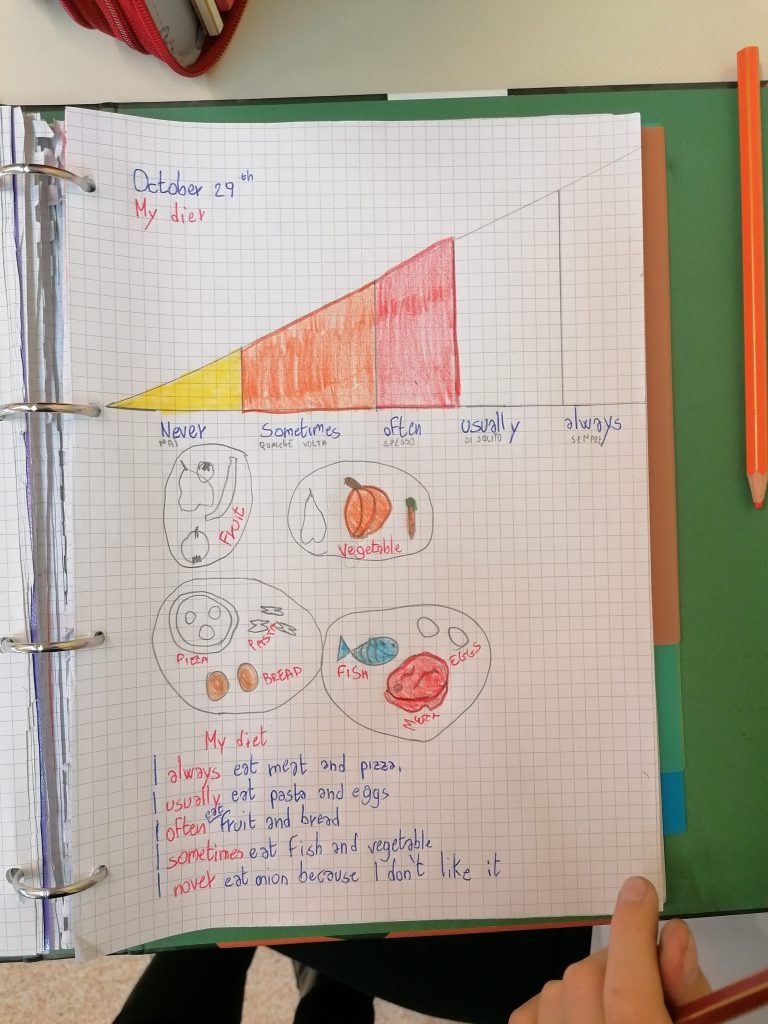 October 29th
My diet
Never Sometimes often usually always
MAI QUALCHE VOLTA SPESSO DI SOLITO SEMPRE
Fruit
Vegetable
PIZZA
PASTA
BREAD
FISH
EGGS
MEAT
My diet
I always eat meat and pizza.
I usually eat pasta and eggs
I often eat fruit and bread
I sometimes eat fish and vegetable
I never eat onion because I don't like it